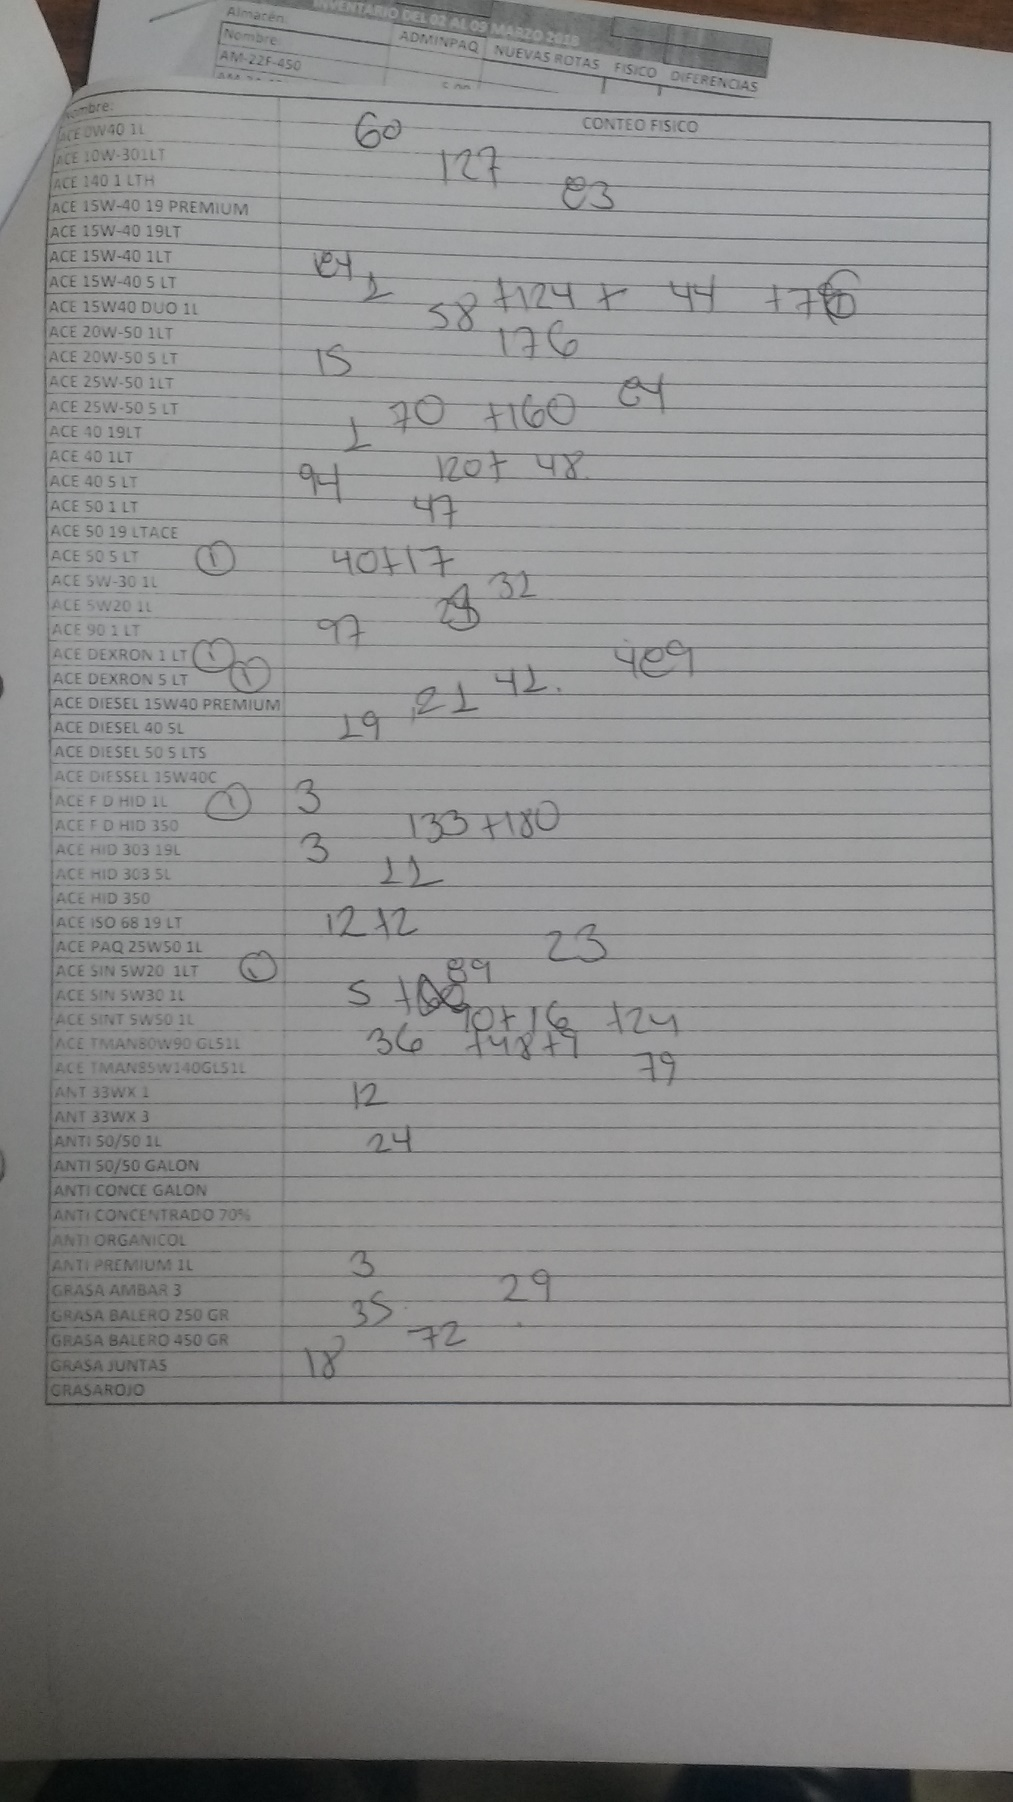 INVENTARIO DEL 02 AL 09 MARZO 2018
Almacén:
Nombre ADMINPAQ NUEVAS ROTAS FISICO DIFERENCIAS
AM-22F-450
Nombre: CONTEO FISICO
ACE 0W40 1L 60
ACE 10W-301LT 127
ACE 140 1 LTH 83
ACE 15W-40 19 PREMIUM
ACE 15W-40 19LT
ACE 15W-40 1LT
ACE 15W-40 5 LT 1
ACE 15W40 DUO 1L 58 +124 + 44
ACE 20W-50 1LT 176
ACE 20W-50 5 LT 15
ACE 25W-50 1LT
ACE 25W-50 5 LT 70 +160
ACE 40 19LT 1
ACE 40 1LT 120+ 48
ACE 40 5 LT 94
ACE 50 1 LT 47
ACE 50 19 LTACE
ACE 50 5 LT 1 40+17
ACE 5W-30 1L 32
ACE 5W20 1L
ACE 90 1 LT 97
ACE DEXRON 1 LT 1 409
ACE DEXRON 5 LT 1 42.
ACE DIESEL 15W40 PREMIUM 21
ACE DIESEL 40 5L 19
ACE DIESEL 50 5 LTS
ACE DIESSEL 15W40C
ACE F D HID 1L 1 3
ACE F D HID 350 133 +180
ACE HID 303 19L 3
ACE HID 303 5L 11
ACE HID 350
ACE ISO 68 19 LT 12 +2
ACE PAQ 25W50 1L 23
ACE SIN 5W20 1LT 89
ACE SIN 5W30 1L 5
ACE SINT 5W50 1L 90+16 +24
ACE TMAN80W90 GL51L 36 +48+9
ACE TMAN85W140GL51L 79
ANT 33WX 1 12
ANT 33WX 3
ANTI 50/50 1L 24
ANTI 50/50 GALON
ANTI CONCE GALON
ANTI CONCENTRADO 70%
ANTI ORGANICOL
ANTI PREMIUM 1L 3
GRASA AMBAR 3 29
GRASA BALERO 250 GR 35
GRASA BALERO 450 GR 72
GRASA JUNTAS 18
GRASAROJO